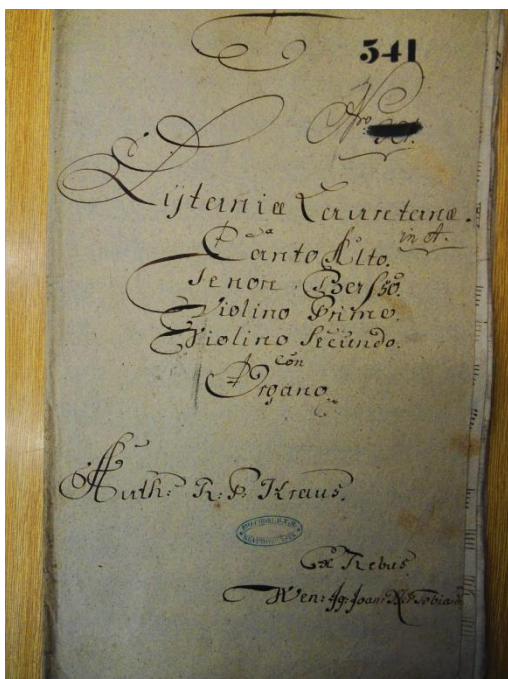 541
Nro
Lytaniæ Lauretanæ.
in A.
Canto Alto.
Tenore Basso.
Violino Primo.
Violino Secundo.
Con
Organo
Auth: R: P: Kraus.
Ex Rebus
Wen: Ig: Joan: Tobias